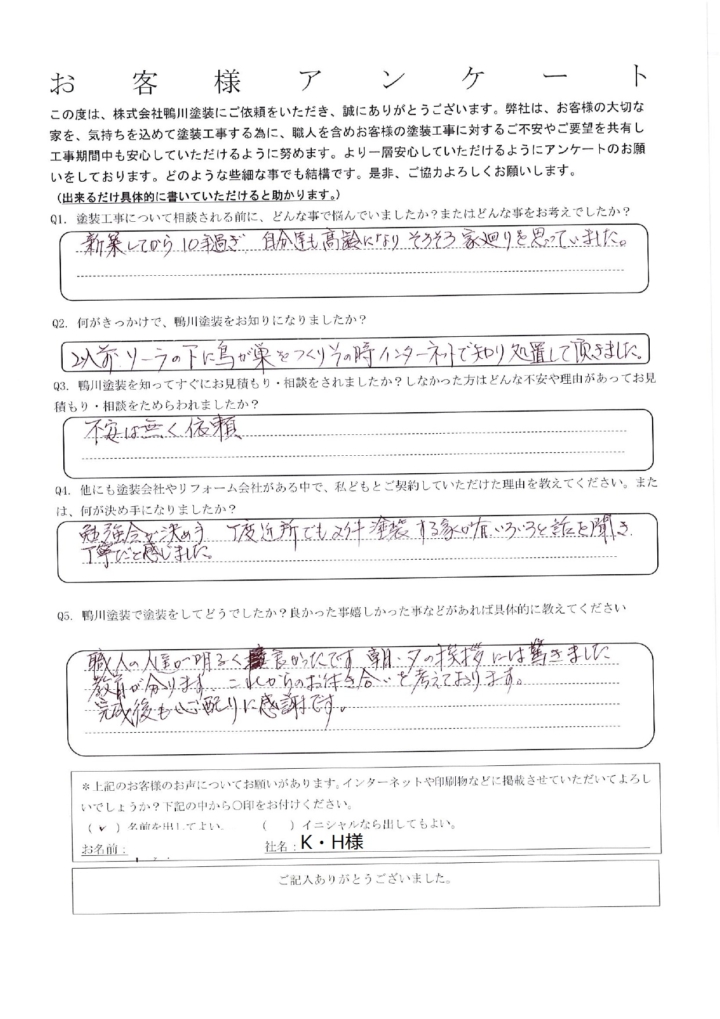 お客様アンケート
この度は、株式会社鴨川塗装にご依頼をいただき、誠にありがとうございます。弊社は、お客様の大切な
家を、気持ちを込めて塗装工事する為に、職人を含めお客様の塗装工事に対するご不安やご要望を共有し
工事期間中も安心していただけるように努めます。より一層安心していただけるようにアンケートのお願
いをしております。どのような些細な事でも結構です。是非、ご協力よろしくお願いします。
（出来るだけ具体的に書いていただけると助かります。）
Q1. 塗装工事について相談される前に、どんな事で悩んでいましたか？またはどんな事をお考えでしたか？
新築してから10年過ぎ 自分達も高齢になり そろそろ家廻りを思っていました。
Q2. 何がきっかけで、鴨川塗装をお知りになりましたか？
以前ソーラの下に鳥が巣をつくりその時インターネットで知り処置して頂きました。
Q3. 鴨川塗装を知ってすぐにお見積もり・相談をされましたか？しなかった方はどんな不安や理由があってお見
積もり・相談をためらわれましたか？
不安は無く依頼
Q4. 他にも塗装会社やリフォーム会社がある中で、私どもとご契約していただけた理由を教えてください。また
は、何が決め手になりましたか？
勉強会が決め手 丁度近所でも2件塗装する家が有いろいろと話を聞き
丁寧だと感じました。
Q5. 鴨川塗装で塗装をしてどうでしたか？良かった事嬉しかった事などがあれば具体的に教えてください
職人の人達が明るく 良かったです 朝・夕の挨拶には驚きました
教育が分ります これからのお付き合いを考えております。
完成後も心配りに感謝です。
＊上記のお客様のお声についてお願いがあります。インターネットや印刷物などに掲載させていただいてよろし
いでしょうか？下記の中から〇印をお付けください。
（✓）名前を出してよい。 （ ）イニシャルなら出してもよい。
お名前： 社名：K・H様
ご記入ありがとうございました。